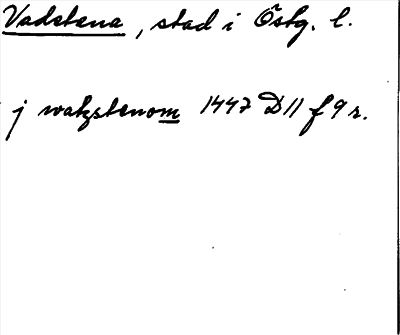 Vadstena, stad i Östg. l.
j watzstenom 1447 D 11 f 9 r.